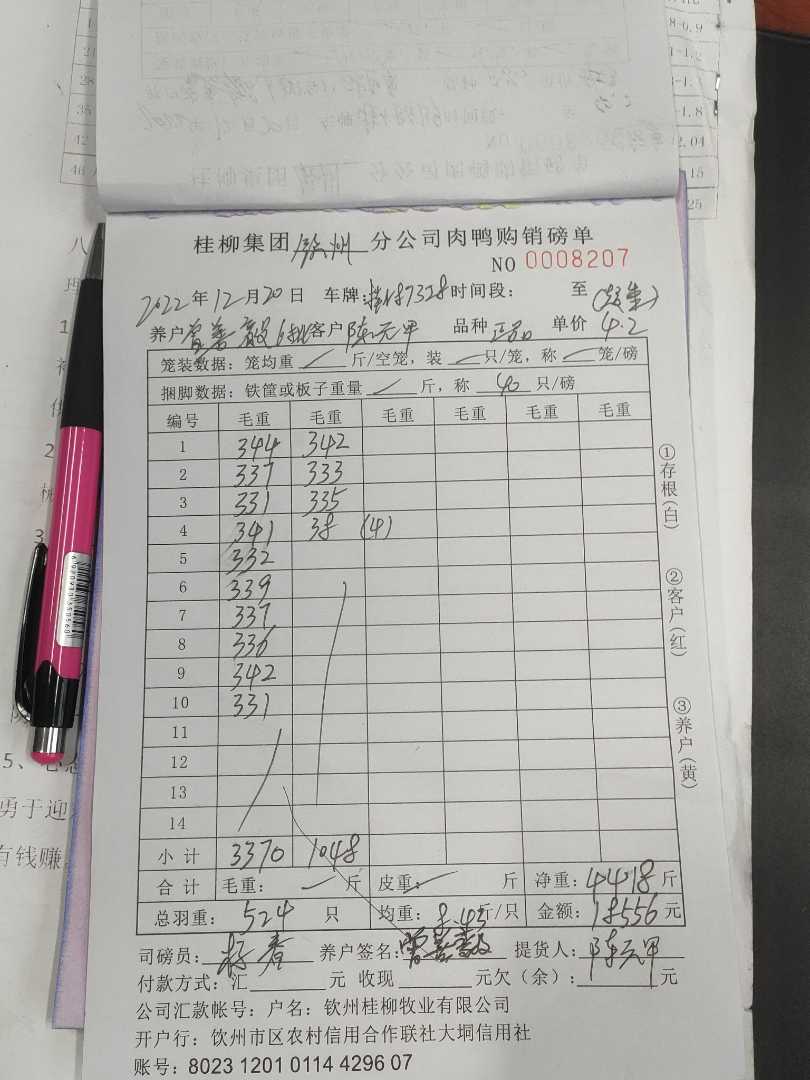 桂柳集团钦州分公司肉鸭购销磅单
NO 0008207
2022年12月20日 车牌: 时间段: 至
养户 客户陈元甲 品种 正品 单价 4.2
笼装数据: 笼均重 斤/空笼, 装 只/笼, 称 笼/磅
捆脚数据: 铁筐或板子重量 斤, 称 40 只/磅
编号 毛重 毛重 毛重 毛重 毛重 毛重
1 344 342
2 337 333
3 331 335
4 341 38 (4)
5 332
6 339
7 337
8 336
9 342
10 331
11
12
13
14
小计 3370 1048
合计 毛重: 斤 皮重: 斤 净重: 4418 斤
总羽重: 524 只 均重: 8.43 斤/只 金额: 18556 元
司磅员: 养户签名: 提货人: 陈元甲
付款方式: 汇 元 收现 元欠(余): 元
公司汇款帐号: 户名: 钦州桂柳牧业有限公司
开户行: 饮州市区农村信用合作联社大垌信用社
账号: 8023 1201 0114 4296 07
①存根(白)
②客户(红)
③养户(黄)
6920930555560
勇于迎
有钱赚